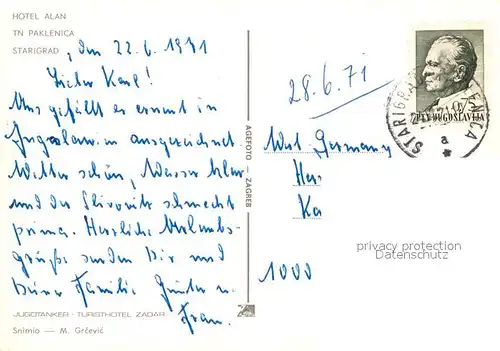 HOTEL ALAN
TN PAKLENICA
STARIGRAD
, den 22.6.1971
Lieber Karl!
Uns gefällt es erneut in
Jugoslawien ausgezeichnet.
Wetter schön, Wasser klar
und der Slivovitz schmeckt
prima. Herzliche Urlaubs-
grüße senden Dir und
Deiner Familie Günter u.
Frau.
JUGOTANKER - TURISTHOTEL ZADAR
Snimio — M. Grčević
AGEFOTO — ZAGREB
28.6.71
JUGOSLAVIJA
STARIGRAD
a
West-Germany
Herr
Ka
1000
privacy protection
Datenschutz